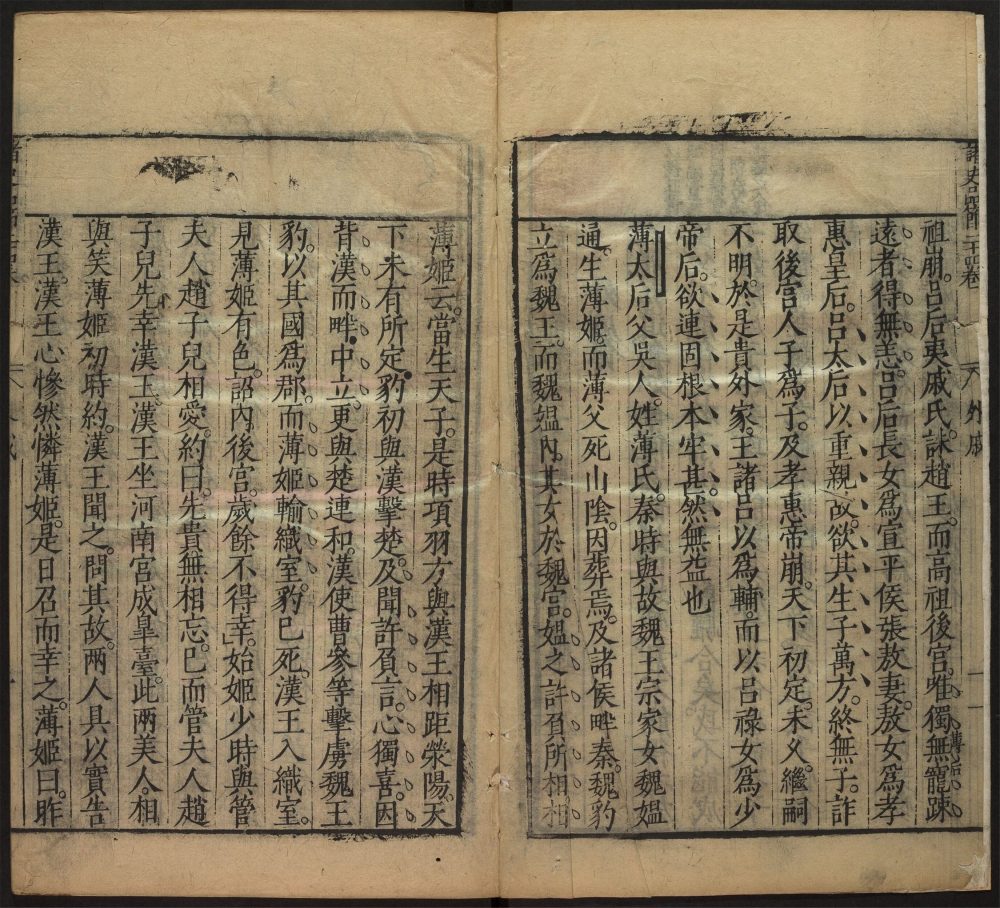 祖崩。呂后夷戚氏。誅趙王。而高祖後宮。唯獨無寵疎
遠者得無恙。呂后長女爲宣平侯張敖妻。敖女爲孝
惠皇后。呂太后以重親故。欲其生子萬方。終無子。詐
取後宮人子爲子。及孝惠帝崩。天下初定。未久。繼嗣
不明。於是貴外家。王諸呂以爲輔。而以呂祿女爲少
帝后。欲連固根本牢甚。然無益也
薄太后父吳人。姓薄氏。秦時與故魏王宗家女魏媼
通。生薄姬。而薄父死山陰。因葬焉。及諸侯畔秦。魏豹
立爲魏王。而魏媼內其女於魏宮。媼之許負所相相
薄姬云。當生天子。是時項羽方與漢王相距滎陽。天
下未有所定。豹初與漢擊楚。及聞許負言。心獨喜。因
背漢而畔。中立。更與楚連和。漢使曹參等擊虜魏王
豹。以其國爲郡。而薄姬輸織室。豹已死。漢王入織室。
見薄姬有色。詔內後宮。歲餘不得幸。始姬少時與管
夫人趙子兒相愛。約曰。先貴無相忘。已而管夫人趙
子兒先幸漢王。漢王坐河南宮成皋臺。此兩美人。相
與笑薄姬初時約。漢王聞之。問其故。兩人具以實告
漢王。漢王心慘然憐薄姬。是日召而幸之。薄姬曰。昨
外戚